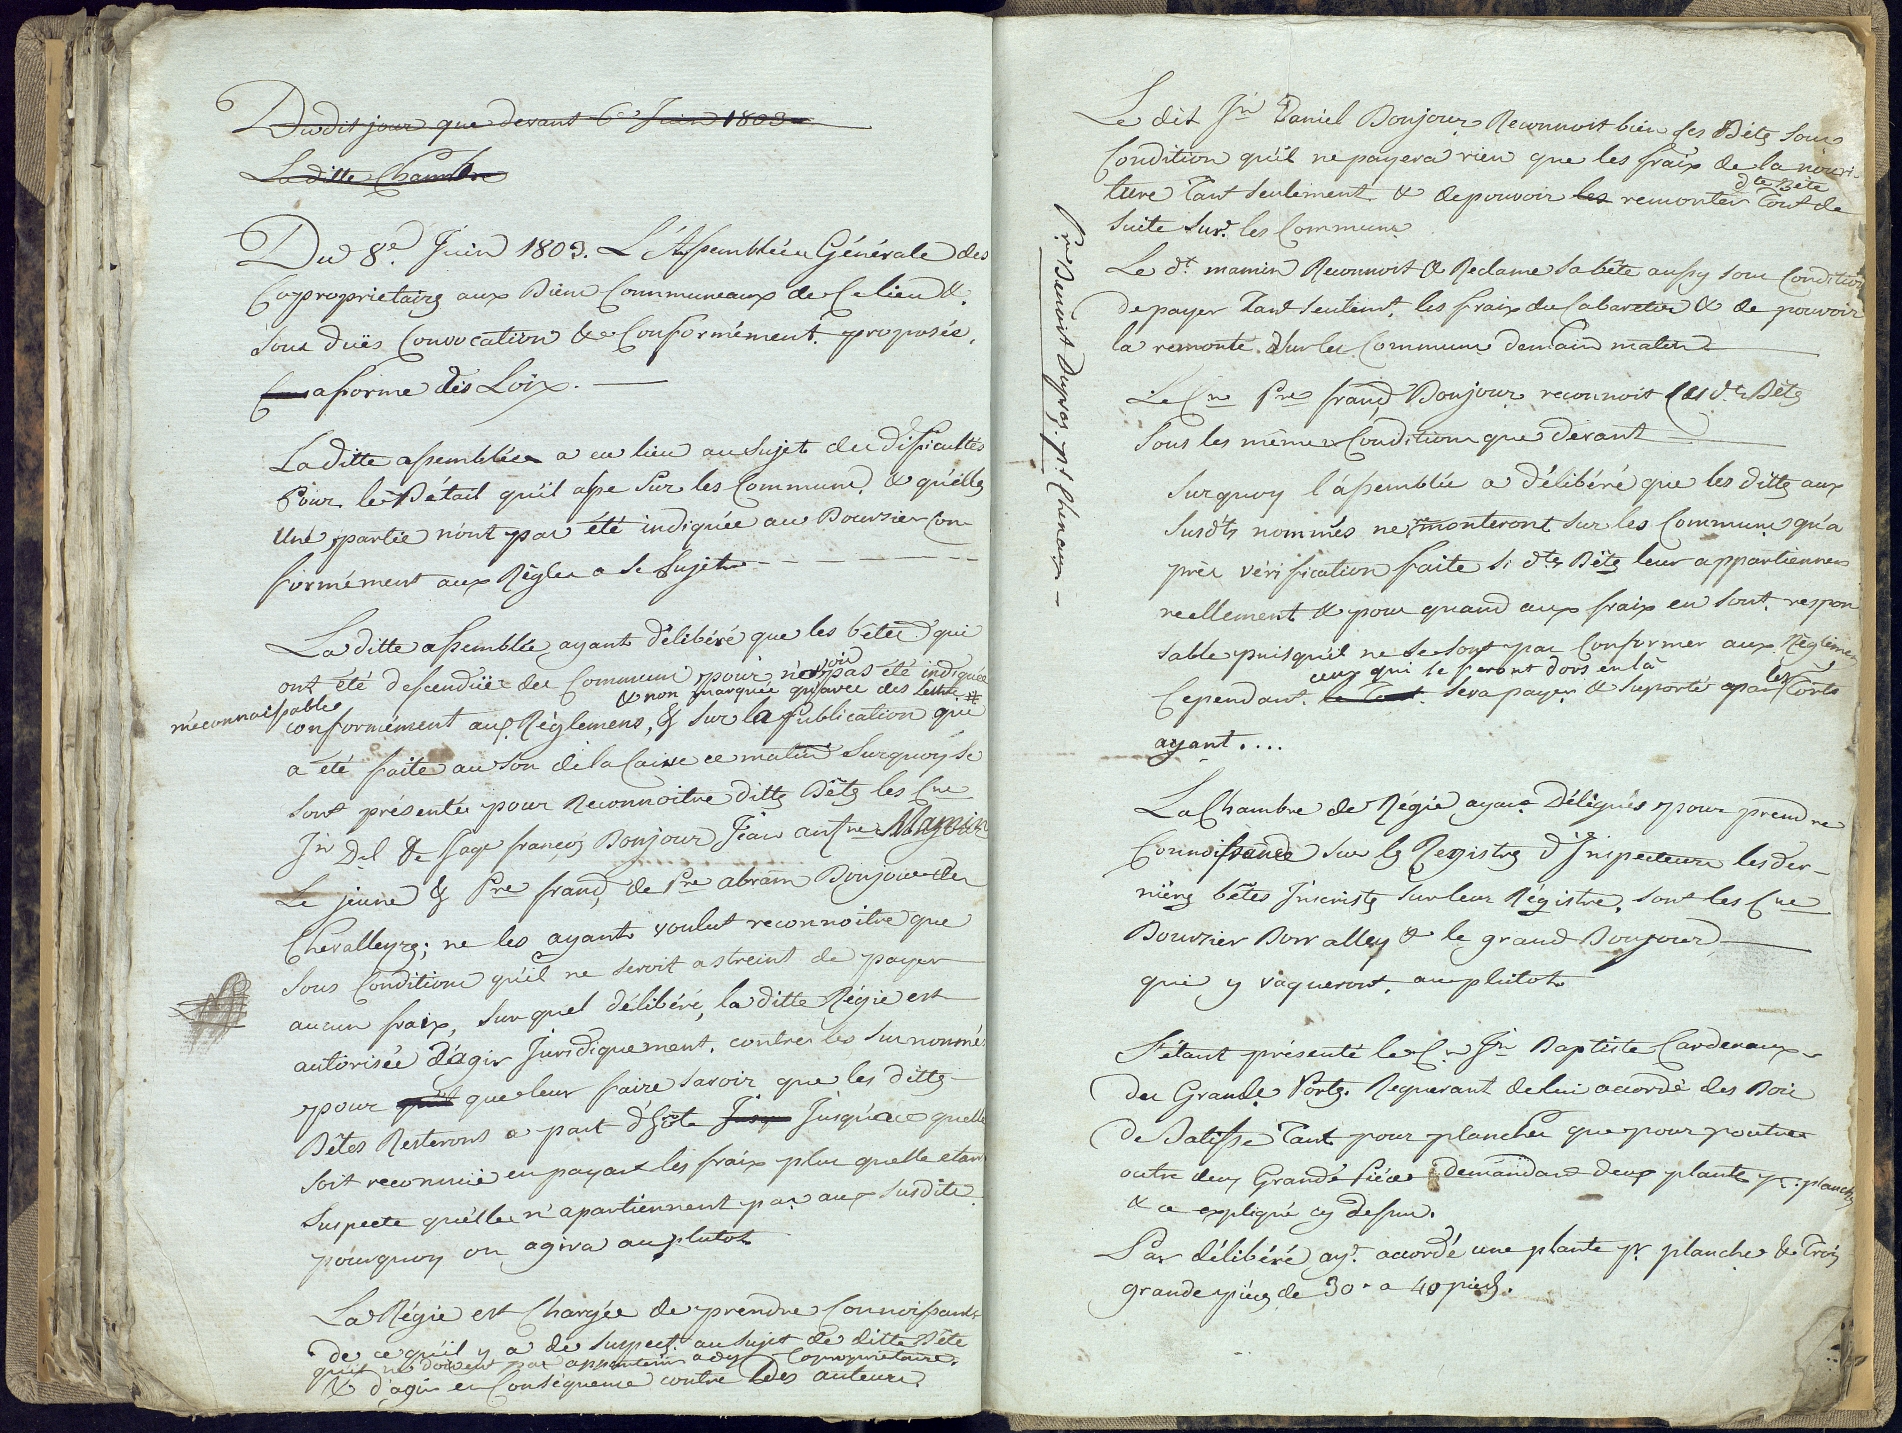 Dudit jour que devant 6e Juin 1803
Laditte Chambre
Du 8e. Juin 1803. L'Assemblée Générale des
Copropriétaires aux Biens Communeaux de Celieu &.
sous duës Convocation & Conformément. proposée,
a forme des Loix. —
La ditte assemblée a eu lieu au Sujet des difficultés
Pour le Bétail qu'il a sur les Communs, & qu'elles
Une partie n'ont pas été indiquée au Boursier Con-
formément aux Règles a Se Sujet. - - - -
La ditte assemblée ayant délibéré que les bêtes qui
ont été descenduë des Communs pour n'avoir pas été indiquée
& non marquée qu'avec des Lettre #
méconnaissable
conformément aux Règlemens, & sur la Publication que
a été faite au Son de la Caisse ce matin Surquoy Se
Sont présentés pour Reconnoitre ditts Bêts les Cne
Jn Dl fe Sage françois Bonjour Jean anfne Mamin
Le jeune & Pre franç, de Pre abram Bonjour des
Chevalleyre; ne les ayants voulut reconnoitre que
sous Condition qu'il ne seroit astreint de payer
aucun fraix, Sur quel délibéré, la ditte Régie est
autorisée d'agir Juridiquement. contre les Surnommé
pour que leur faire savoir que les ditts
Bêtes Resterons a part d'hote Jusqu'ace quelle
soit reconnuë en payant les fraix plus quelle etant
Suspecte qu'elles n'apartiennent pas aux Susdits
pourquoy on agira au plutot
La Régie est Chargée de prendre Connoissance
de ce qu'il y a de Suspect. au Sujet de ditte Bête
qu'il ne doivent pas appartenir a des Copropriétaire.
& d'agir en Conséquence contre Des auteurs.
Pre Benoit Dupras. pt Chenaux —
Le dit Jn Daniel Bonjour Reconnoit bien ses Bêtes Sous
Condition qu'il ne payera rien que les fraix de la nouri-
dte Bête
ture Tant Seulement & de pouvoir les remonter Tout de
Suite Sur. les Communs
Le dt. mamin Reconnoit & Reclame Sa bête aussy Sous Condition
de payer Tant Seulemt. les fraix du Cabaretier & de pouvoir
la remonté Sur les Communs demain matin
Le Cne Pre franç, Bonjour reconnoit les dts Bêts
Sous les mêmes Conditions que devant
Surquoy l'assemblée a délibéré que les ditts aux
Susdts nommés ne remonteront Sur les Communs qu'a
près vérification faite Si dts Bêts leur appartiennent
reellement & pour quand aux fraix en Sont respon
sable puisqu'il ne Se Sont pas Conformer aux Règlemens
ceux qui le feront dors en là
Cependant. Sera payer & Suporté par les Torts
ayant. ...
La Chambre de Régie ayant Délégués pour prendre
Connoissance Sur les Registre d'Inspecteur les der-
niers bêtes Inscrists Sur leur Régistre, Sont les Cne
Boursier Borralley & le grand Bonjour —
qui y vaqueront, au plutot
S'étant présenté le Cn Jn Baptiste Cardenaux
des Grande Ports. Requerant de lui accordé des Bois
de Batisse Tant pour plancher que pour poutre
outre deux Grande Pièces Demandant deux plante pr planche
& ce expliqué cy dessus.
Par délibéré ayt. accordé une plante pr planche & Trois
grande pièces de 30 - a 40 pieds.